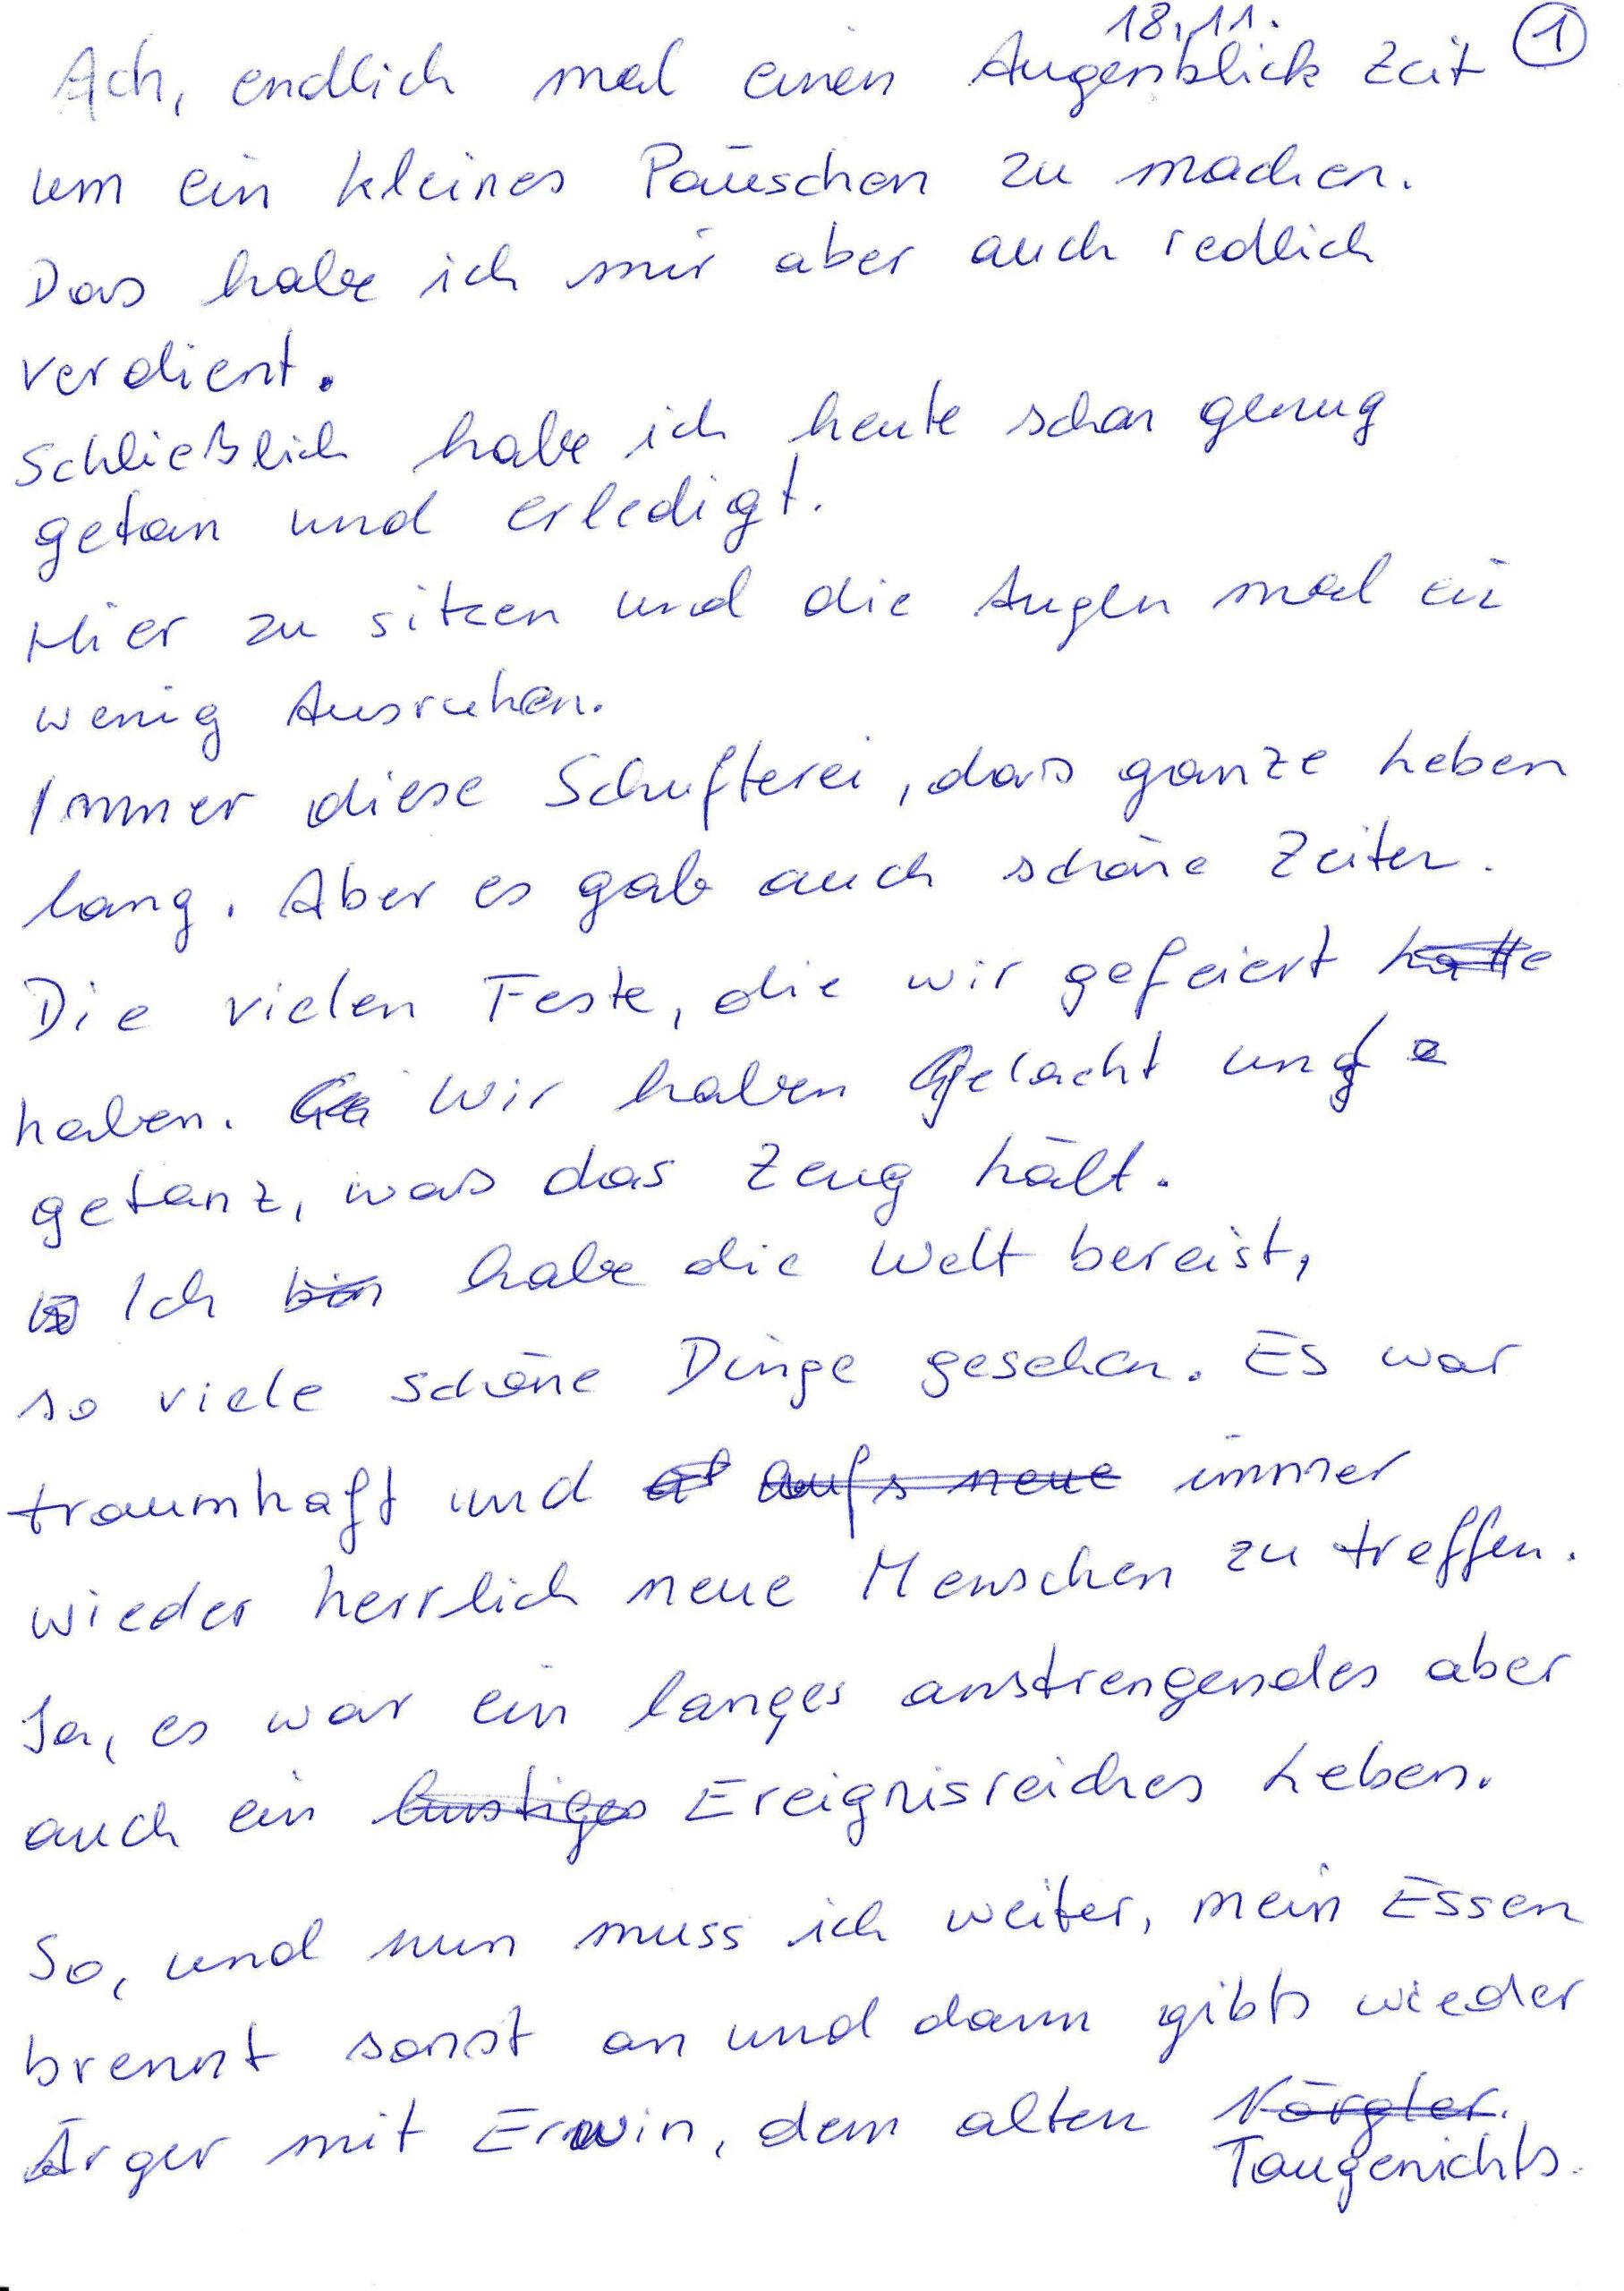 18.11. ①
Ach, endlich mal einen Augenblick Zeit
um ein kleines Päuschen zu machen.
Das habe ich mir aber auch redlich
verdient.
Schließlich habe ich heute schon genug
getan und erledigt.
Hier zu sitzen und die Augen mal ein
wenig Ausruhen.
Immer diese Schufterei, das ganze Leben
lang. Aber es gab auch schöne Zeiten.
Die vielen Feste, die wir gefeiert hatte
haben. Wir haben Gelacht und
getanz, was das Zeug hält.
Ich bin habe die Welt bereist,
so viele schöne Dinge gesehen. Es war
traumhaft und aufs neue immer
wieder herrlich neue Menschen zu treffen.
Ja, es war ein langes anstrengendes aber
auch ein lustiges Ereignisreiches Leben.
So, und nun muss ich weiter, mein Essen
brennt sonst an und dann gibts wieder
Ärger mit Erwin, dem alten Nörgler.
Taugenichts.